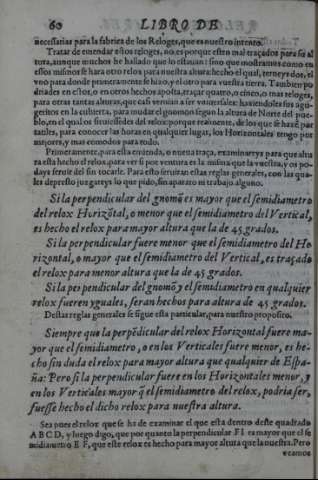 60 LIBRO DE
necessarias para la fabrica de los Reloges, que es nuestro intento.
Tratar de emendar estos reloges, no es porque esten mal traçados para su al
tura, aunque muchos he hallado que lo estauan: sino que mostramos como en
essos mismos se hara otro relox para nuestra altura: hecho el qual, terneys dos, el
vno para donde primeramente se hizo, y el otro para vuestra tierra. Tambien po
driades en estos, o en otros hechos aposta, traçar quatro, o cinco, o mas reloges,
para otras tantas alturas, que casi vernian a ser vniuersales: haziendoles sus agu
geritos en la cubierta, para mudar el gnomon segun la altura de Norte del pue-
blo, en el qual os siruiessedes del relox: porque realmente, de los que se hazẽ por
tatiles, para conocer las horas en qualquier lugar, los Horizontales tengo por
mejores, y mas comodos para todo.
Primeramente, para esta emienda, o nueua traça, examinareys para que altu
ra esta hecho el relox, para ver si por ventura es la misma que la vuestra, y os po-
days seruir del sin tocarle. Para esto seruiran estas reglas generales, con las qua-
les de presto juzgareys lo que pido, sin aparato ni trabajo alguno.
Si la perpendicular del gnomõ es mayor que el semidiametro
del relox Horizõtal, o menor que el semidiametro del Vertical,
es hecho el relox para mayor altura que la de 45 grados.
Si la perpendicular fuere menor que el semidiametro del Ho
rizontal, o mayor que el semidiametro del Vertical, es traçado
el relox para menor altura que la de 45 grados.
Si la perpendicular del gnomõ y el semidiametro en qualquier
relox fueren yguales, seran hechos para altura de 45 grados.
Destas reglas generales se sigue esta particular, para nuestro proposito.
Siempre que la perpẽdicular del relox Horizontal fuere ma-
yor que el semidiametro, o en los Verticales fuere menor, es he-
cho sin duda el relox para mayor altura que qualquier de Espa-
ña: Pero si la perpendicular fuere en los Horizontales menor, y
en los Verticales mayor q̃ el semidiametro del relox, podria ser,
fuesse hecho el dicho relox para nuestra altura.
Sea pues el relox que se ha de examinar el que esta dentro deste quadrado
A B C D, y luego digo, que por quanto la perpendicular F I es mayor que el se
midiametro E F, que este relox es hecho para mayor altura que la nuestra. Pero
veamos